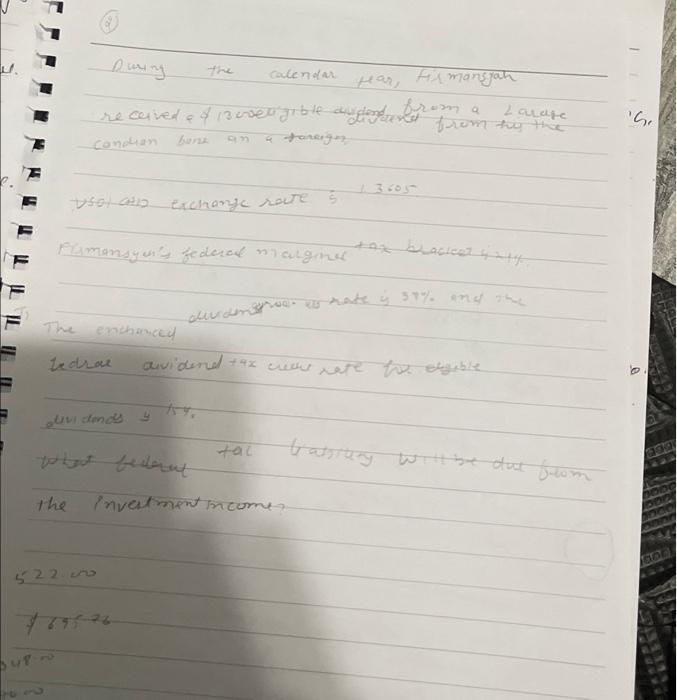 2
During the calendar year, Firmansyah
received a $ 1300 eligible dividend from a Large
dividend from by the
Condian bone an a foreign,
USD/CAD exchange rate is 1.3605
Firmansyah's federal marginal tax bracket is
The enhanced dividend gross-up rate is 38% and the
federal dividend tax credit rate for eligible
dividends is 15%.
What federal tax liability will be due from
the investment income?
522.00
$ 695.76
348.00